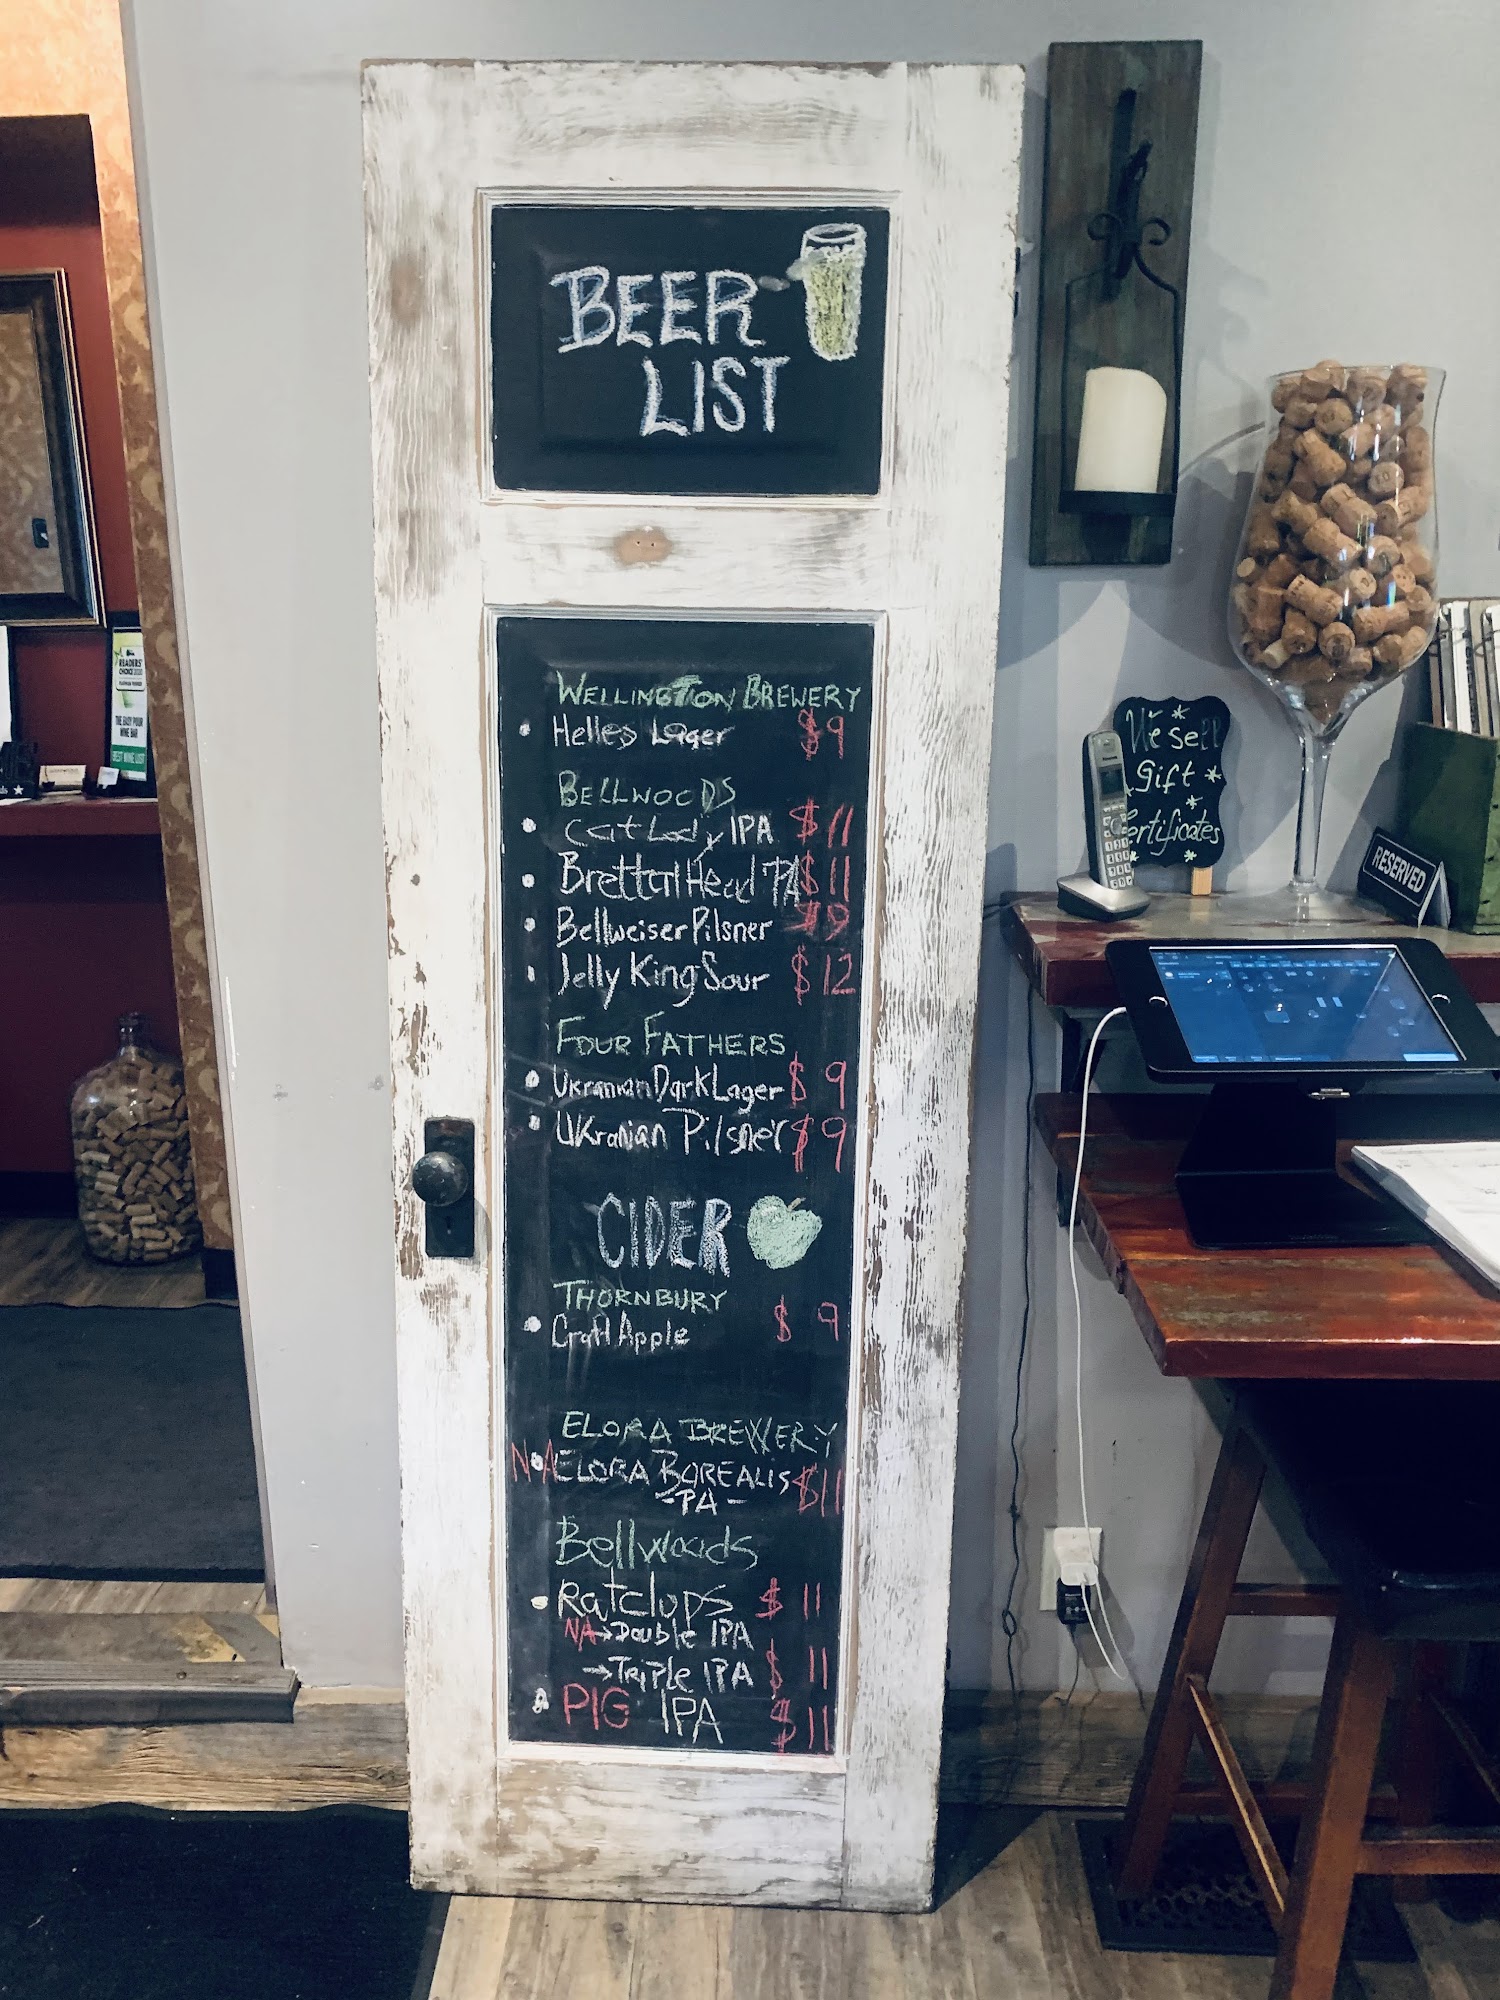 BEER
LIST
WELLINGTON BREWERY
Helles Lager $9
BELLWOODS
Cat Lady IPA $11
Bretter Head IPA $11
Bellweiser Pilsner $9
Jelly King Sour $12
FOUR FATHERS
Ukranian Dark Lager $9
UKranian Pilsner $9
CIDER
THORNBURY
Craft Apple $9
ELORA BREWERY
NA ELORA BOREALIS $11
-PA-
Bellwoods
Ratclops $11
NA→Double IPA
→Triple IPA $11
PIG IPA $11
We sell
Gift
Certificates
RESERVED
READERS'
CHOICE 2020
THE EASY POUR
WINE BAR
BEST WINE LIST